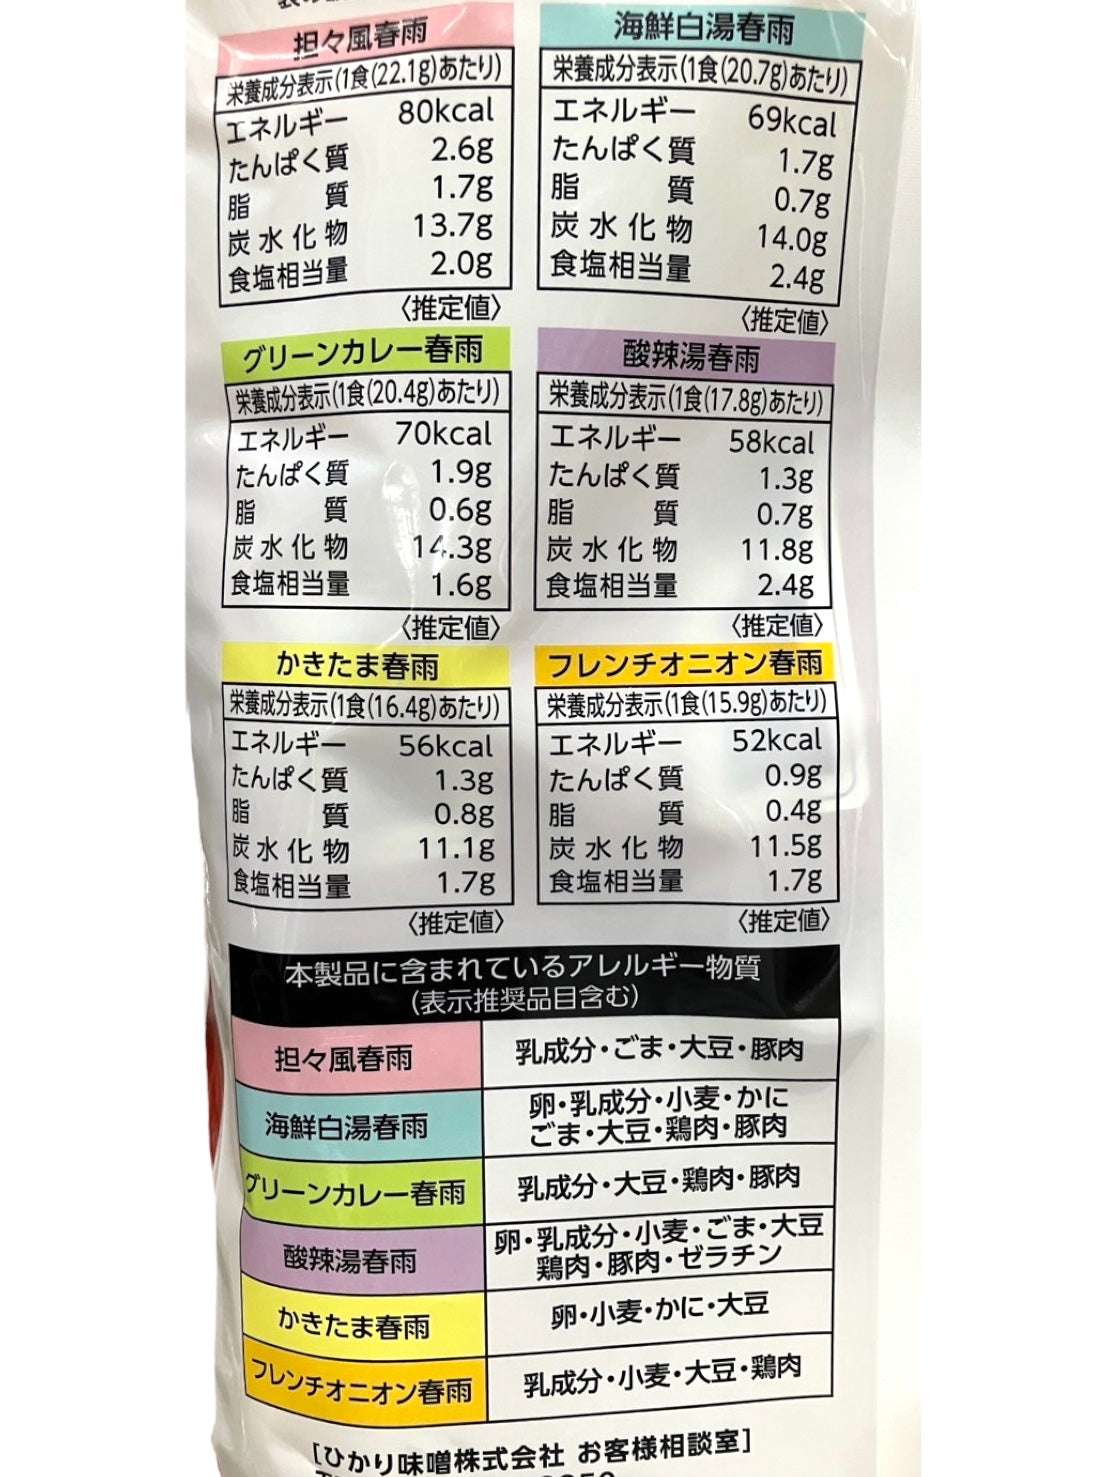 担々風春雨
栄養成分表示(1食(22.1g)あたり)
エネルギー 80kcal
たんぱく質 2.6g
脂質 1.7g
炭水化物 13.7g
食塩相当量 2.0g
〈推定値〉
海鮮白湯春雨
栄養成分表示(1食(20.7g)あたり)
エネルギー 69kcal
たんぱく質 1.7g
脂質 0.7g
炭水化物 14.0g
食塩相当量 2.4g
〈推定値〉
グリーンカレー春雨
栄養成分表示(1食(20.4g)あたり)
エネルギー 70kcal
たんぱく質 1.9g
脂質 0.6g
炭水化物 14.3g
食塩相当量 1.6g
〈推定値〉
酸辣湯春雨
栄養成分表示(1食(17.8g)あたり)
エネルギー 58kcal
たんぱく質 1.3g
脂質 0.7g
炭水化物 11.8g
食塩相当量 2.4g
〈推定値〉
かきたま春雨
栄養成分表示(1食(16.4g)あたり)
エネルギー 56kcal
たんぱく質 1.3g
脂質 0.8g
炭水化物 11.1g
食塩相当量 1.7g
〈推定値〉
フレンチオニオン春雨
栄養成分表示(1食(15.9g)あたり)
エネルギー 52kcal
たんぱく質 0.9g
脂質 0.4g
炭水化物 11.5g
食塩相当量 1.7g
〈推定値〉
本製品に含まれているアレルギー物質
(表示推奨品目含む)
担々風春雨 乳成分・ごま・大豆・豚肉
海鮮白湯春雨 卵・乳成分・小麦・かに
ごま・大豆・鶏肉・豚肉
グリーンカレー春雨 乳成分・大豆・鶏肉・豚肉
酸辣湯春雨 卵・乳成分・小麦・ごま・大豆
鶏肉・豚肉・ゼラチン
かきたま春雨 卵・小麦・かに・大豆
フレンチオニオン春雨 乳成分・小麦・大豆・鶏肉
[ひかり味噌株式会社 お客様相談室]